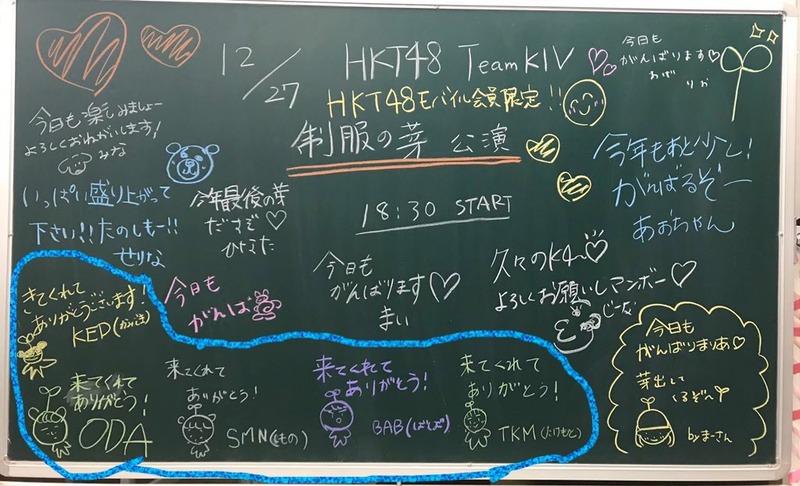 12/27
HKT48 TeamKIV
HKT48モバイル会員限定!!
制服の芽 公演
18:30 START
今日も
がんばります♡
今日も楽しみましょー
よろしくおねがいします!
みな
いっぱい盛り上がって
下さい!!たのしもー!!
せりな
今年最後の芽
だすぞ♡
今年もあと少し!
がんばるぞー
あおちゃん
今日も
がんば
今日も
がんばります♡
まい
久々のK4〜♡
よろしくお願いしマンボー♡
じーな
きてくれて
ありがとうございます!
KED
来てくれて
ありがとう!
ODA
来てくれて
ありがとう!
SMN(しもの)
来てくれて
ありがとう!
BAB(ばば)
来てくれて
ありがとう!
TKM(たけもと)
今日も
がんばりまりあ♡
芽出して
くるぞー
byまーさん